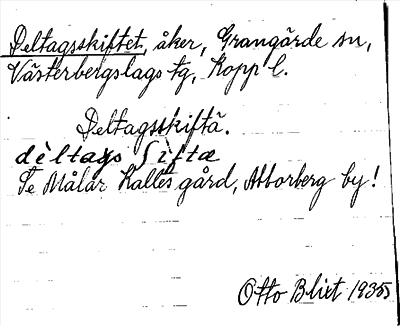 Deltagsskiftet, åker, Grangärde sn,
Västerbergslags tg, Kopp l.
Deltagsskiftä.
dèltags ʃiftæ
Se Målar Kalles gård, Abborberg by!
Otto Blixt 1935